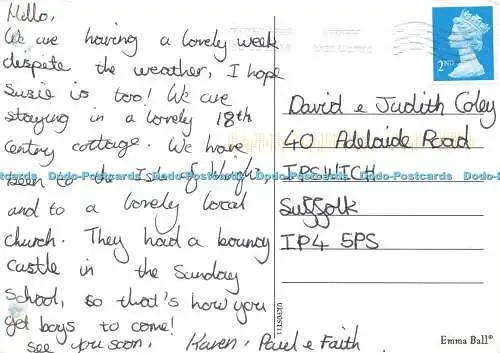 Hello,
We are having a lovely week
dispete the weather, I hope
Susie is too! We are
staying in a lovely 18th
centry cottage. We have
been to the Isle of Wight
and to a lovely local
church. They had a bouncy
castle in the Sunday
School, so that's how you
get boys to come!
see you soon, Karen, Paul e Faith
2ND
David e Judith Coley
40 Adelaide Road
IPSWICH
Suffolk
IP4 5PS
Dodo-Postcards Dodo-Postcards Dodo-Postcards Dodo-Postcards Dodo-Postcards
Emma Ball®